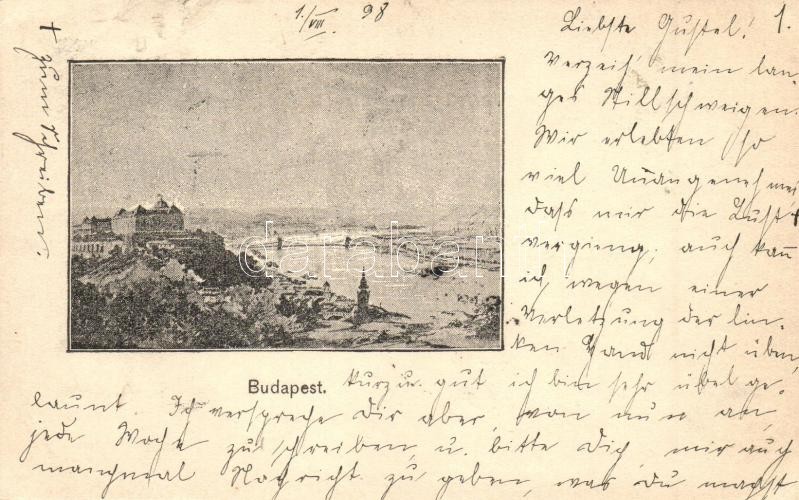 1./VIII. 98
1.
Liebste Gustel!
Verzeih' mein lan-
ges Stillschweigen.
Wir erlebten so
viel Unangenehmes
dass mir die Lust +
vergieng, auch kann
ich, wegen einer
Verletzung der lin-
ken Hand nicht üben,
Budapest.
kurz u. gut ich bin sehr übel ge-
launt. Ich verspreche Dir aber, von nun an,
jede Woche zu schreiben, u. bitte Dich, mir auch
manchmal Nachricht zu geben, was Du machst
+ zum Schreiben.
darabanth